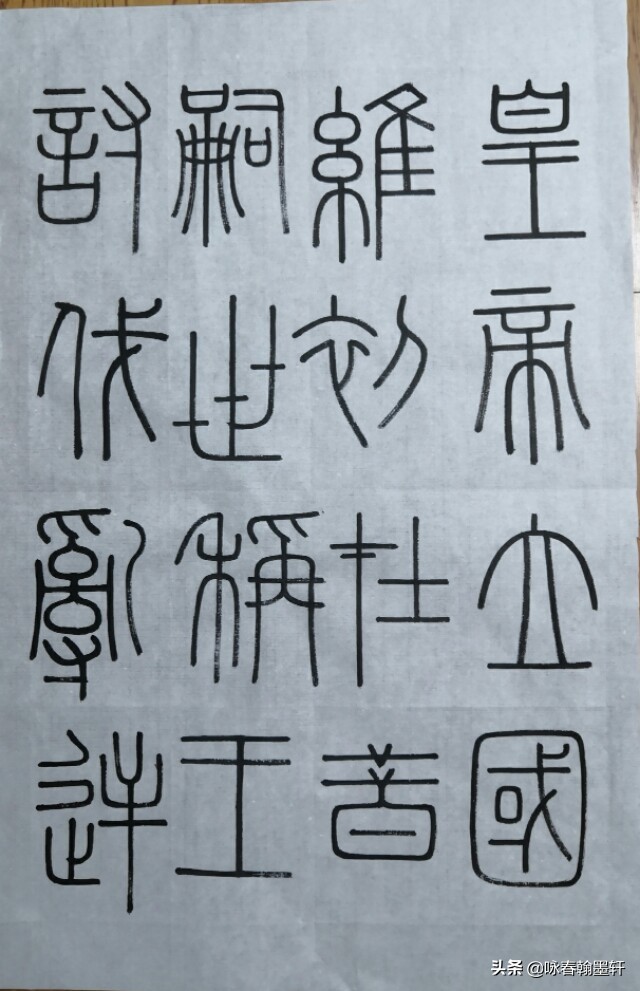 皇帝立國
維初在昔
嗣世稱王
討伐亂逆
头条 @咏春翰墨轩